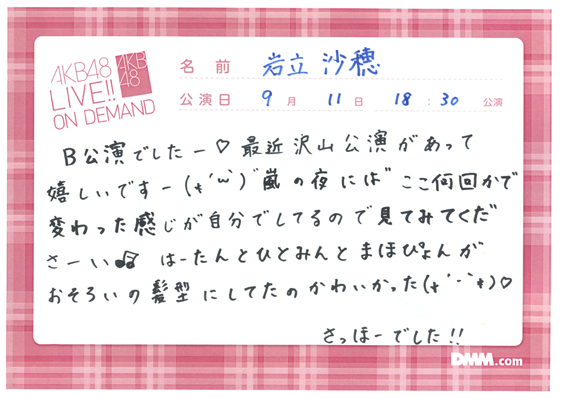 AKB48
LIVE!!
ON DEMAND
AKB
48
名前 岩立 沙穂
公演日 9月 11日 18:30 公演
B公演でしたー♡ 最近沢山公演があって
嬉しいですー(*´ω`)"嵐の夜には"ここ何回かで
変わった感じが自分でしてるので見てみてくだ
さーい♫ はーたんとひとみんとまほぴょんが
おそろいの髪型にしてたのかわいかった(*´-`*)♡
さっほーでした!!
DMM.com